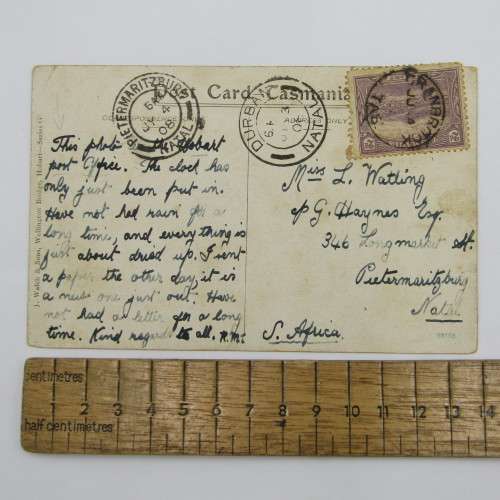 Post Card Tasmania
CORRESPONDENCE
ADDRESS ONLY
PIETERMARITZBURG
NATAL
DURBAN
NATAL
CRANBROOK
TAS
J. Walch & Sons, Wellington Bridge, Hobart—Series
This photo the Hobart
post Office. The clock has
only just been put in.
Have not had rain for a
long time, and everything is
just about dried up. I sent
a paper the other day, it is
a new one just out. Have
not had a letter for a long
time. Kind regards to all.
Miss L. Watling
c/o G. Haynes Esq.
346 Longmarket St.
Pietermaritzburg
Natal
S. Africa.
centimetres
1 2 3 4 5 6 7 8 9 10 11 12 13 14
half centimetres